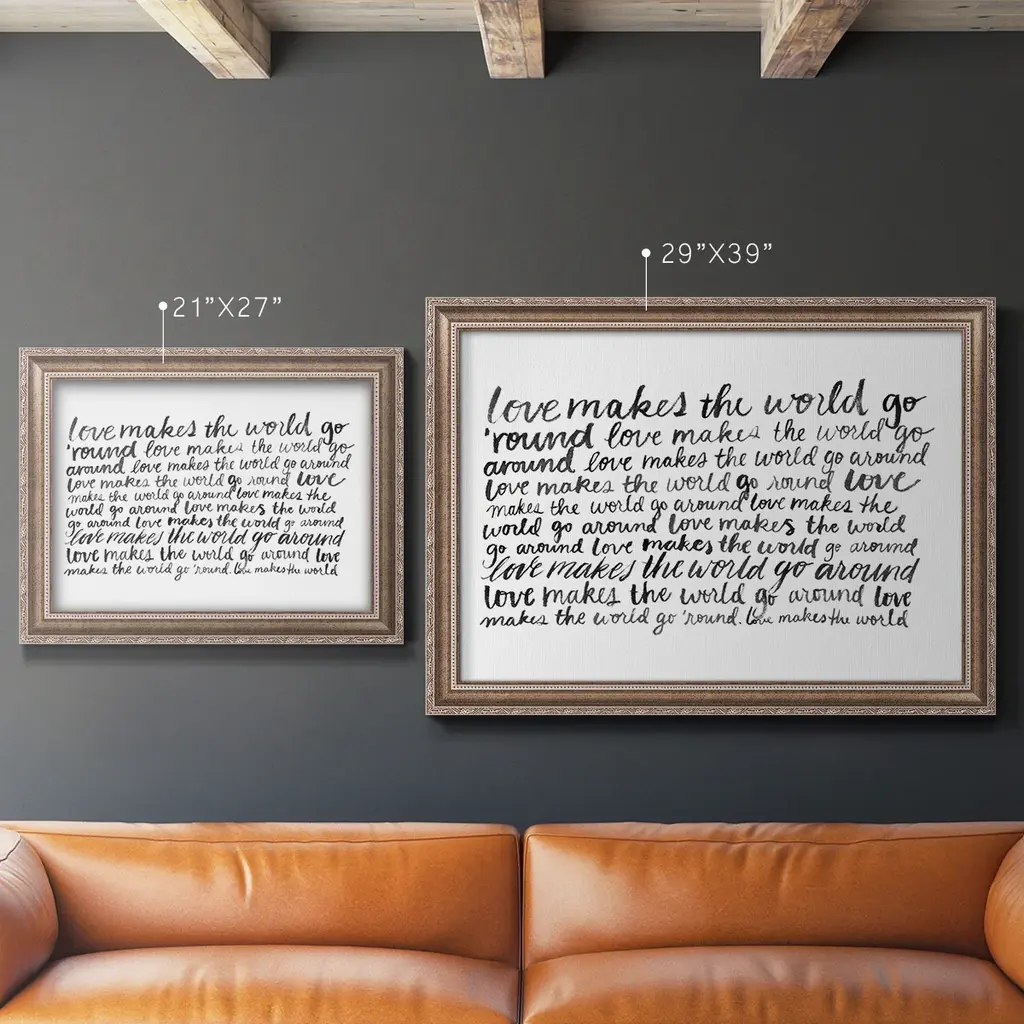 21"X27"
love makes the world go
'round love makes the world go
around love makes the world go around
love makes the world go round love
makes the world go around love makes the
world go around love makes the world
go around love makes the world go around
love makes the world go around
love makes the world go around love
makes the world go 'round. love makes the world
29"X39"
love makes the world go
'round love makes the world go
around love makes the world go around
love makes the world go round love
makes the world go around love makes the
world go around love makes the world
go around love makes the world go around
love makes the world go around
love makes the world go around love
makes the world go 'round. love makes the world